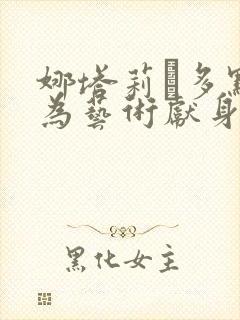 娜塔莉·多
為藝術獻身
黑化女主